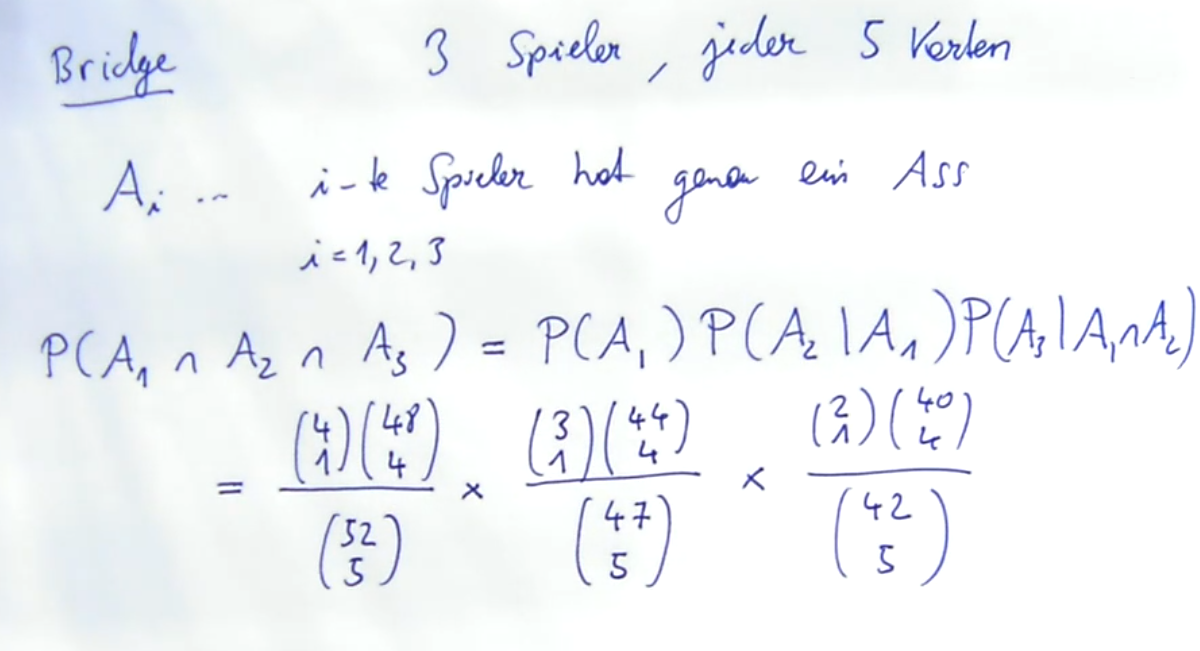 Bridge 3 Spieler, jeder 5 Karten
A_i ... i-te Spieler hat genau ein Ass
i = 1, 2, 3
P(A_1 ∩ A_2 ∩ A_3) = P(A_1) P(A_2 | A_1) P(A_3 | A_1 ∩ A_2)
= \frac{\binom{4}{1}\binom{48}{4}}{\binom{52}{5}} × \frac{\binom{3}{1}\binom{44}{4}}{\binom{47}{5}} × \frac{\binom{2}{1}\binom{40}{4}}{\binom{42}{5}}